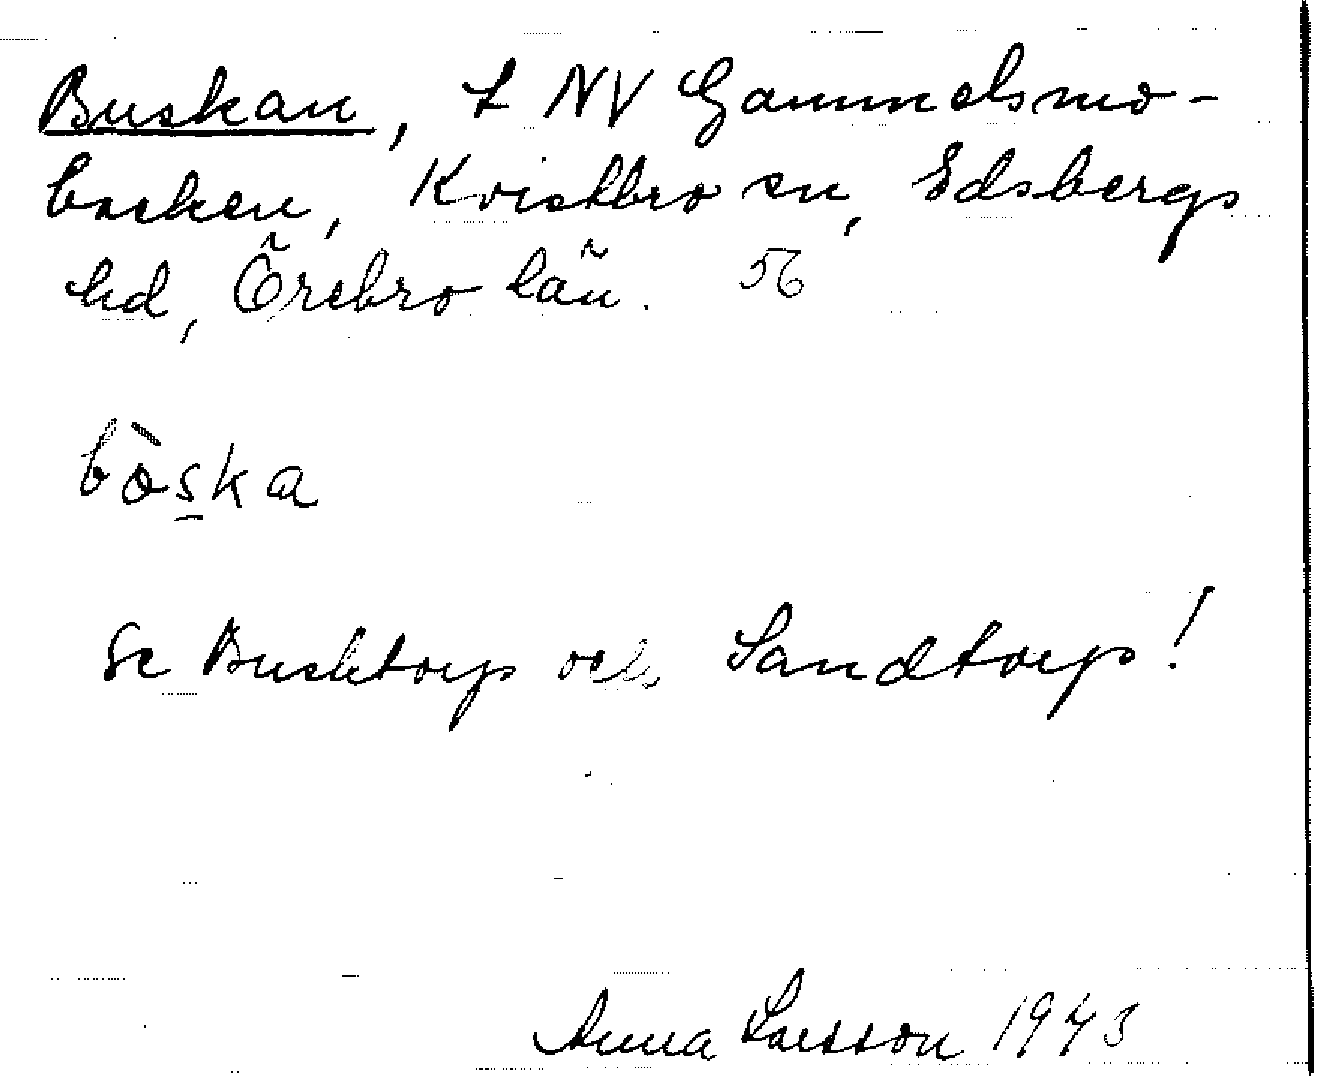 Buskan, t NV Gammelsmo-
backen, Kvistbro sn, Edsbergs
hd, Örebro län. 56
bòs̠ka
Se Busktorp och Sandtorp!
Anna Larsson 1943